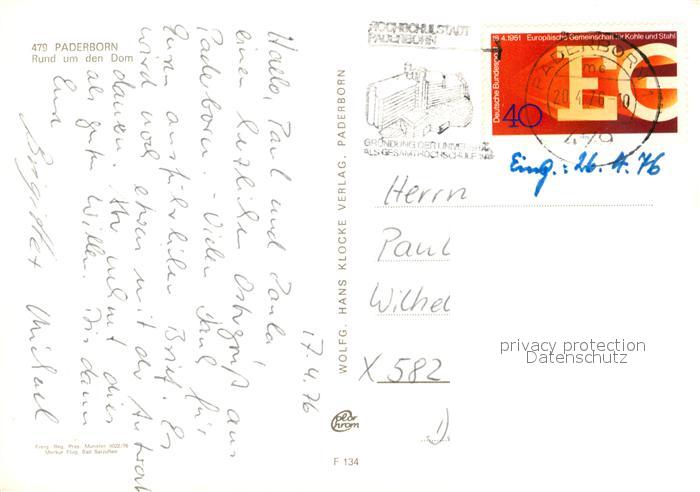 479 PADERBORN
Rund um den Dom
Hallo, Paul und Paula
einen herzlichen Ostergruß aus
Paderborn. - Vielen Dank für
Euren ausführlichen Brief. Es
wird noch etwas mit der Antwort
dauern. Ihr nehmt dies
als guten Willen. Bis dann
Eure
Brigitte + Michael
17.4.76
Freig. Reg. Präs. Münster
Merkur Flug, Bad Salzuflen
WOLFG. HANS KLOCKE VERLAG, PADERBORN
color chrom
F 134
HOCHSCHULSTADT
PADERBORN
GRÜNDUNG DER
ALS GESAMTHOCHSCHULE
18.4.1951 Europäische Gemeinschaft für Kohle und Stahl
Deutsche Bundespost
EG
40
PADERBORN 1
mc
20.4.76-10
479
Eing.: 26.4.76
Herrn
Paul
Wilhel
X 582
privacy protection
Datenschutz